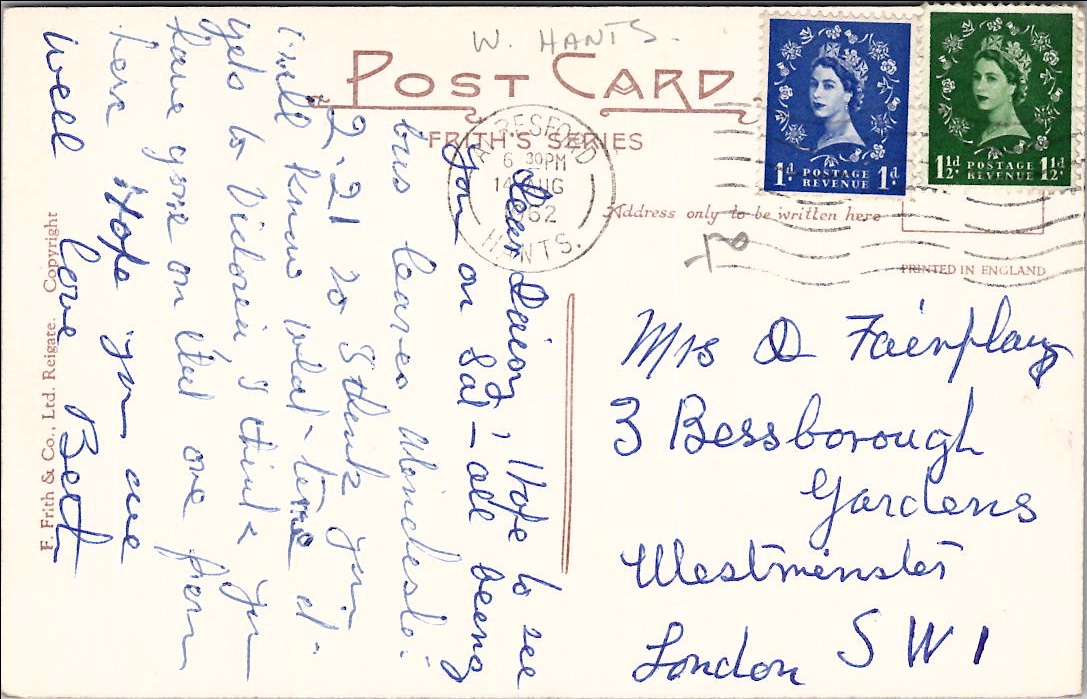 W. HANTS.
POST CARD
FRITH'S SERIES
ALRESFORD
6 30PM
14 AUG
1962
HANTS.
1d POSTAGE REVENUE 1d
1½d POSTAGE REVENUE 1½d
Address only to be written here
PRINTED IN ENGLAND
Dear Daisy, Hope to see
you on Sat - all being
bus leaves Winchester
2-21 so I think you
will know what time it
gets to Victoria I think you
have gone on that one from
here Hope you are
well love Bert
F. Frith & Co., Ltd. Reigate. Copyright
Mrs D Fairplay
3 Bessborough
Gardens
Westminster
London SW1